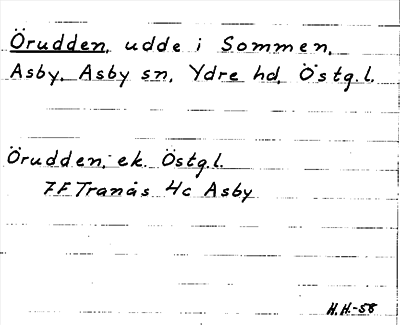 Örudden, udde i Sommen,
Asby, Asby sn, Ydre hd, Östg.l.
Örudden, ek. Östg.l.
7F Tranås 4c Asby
H.H.-58